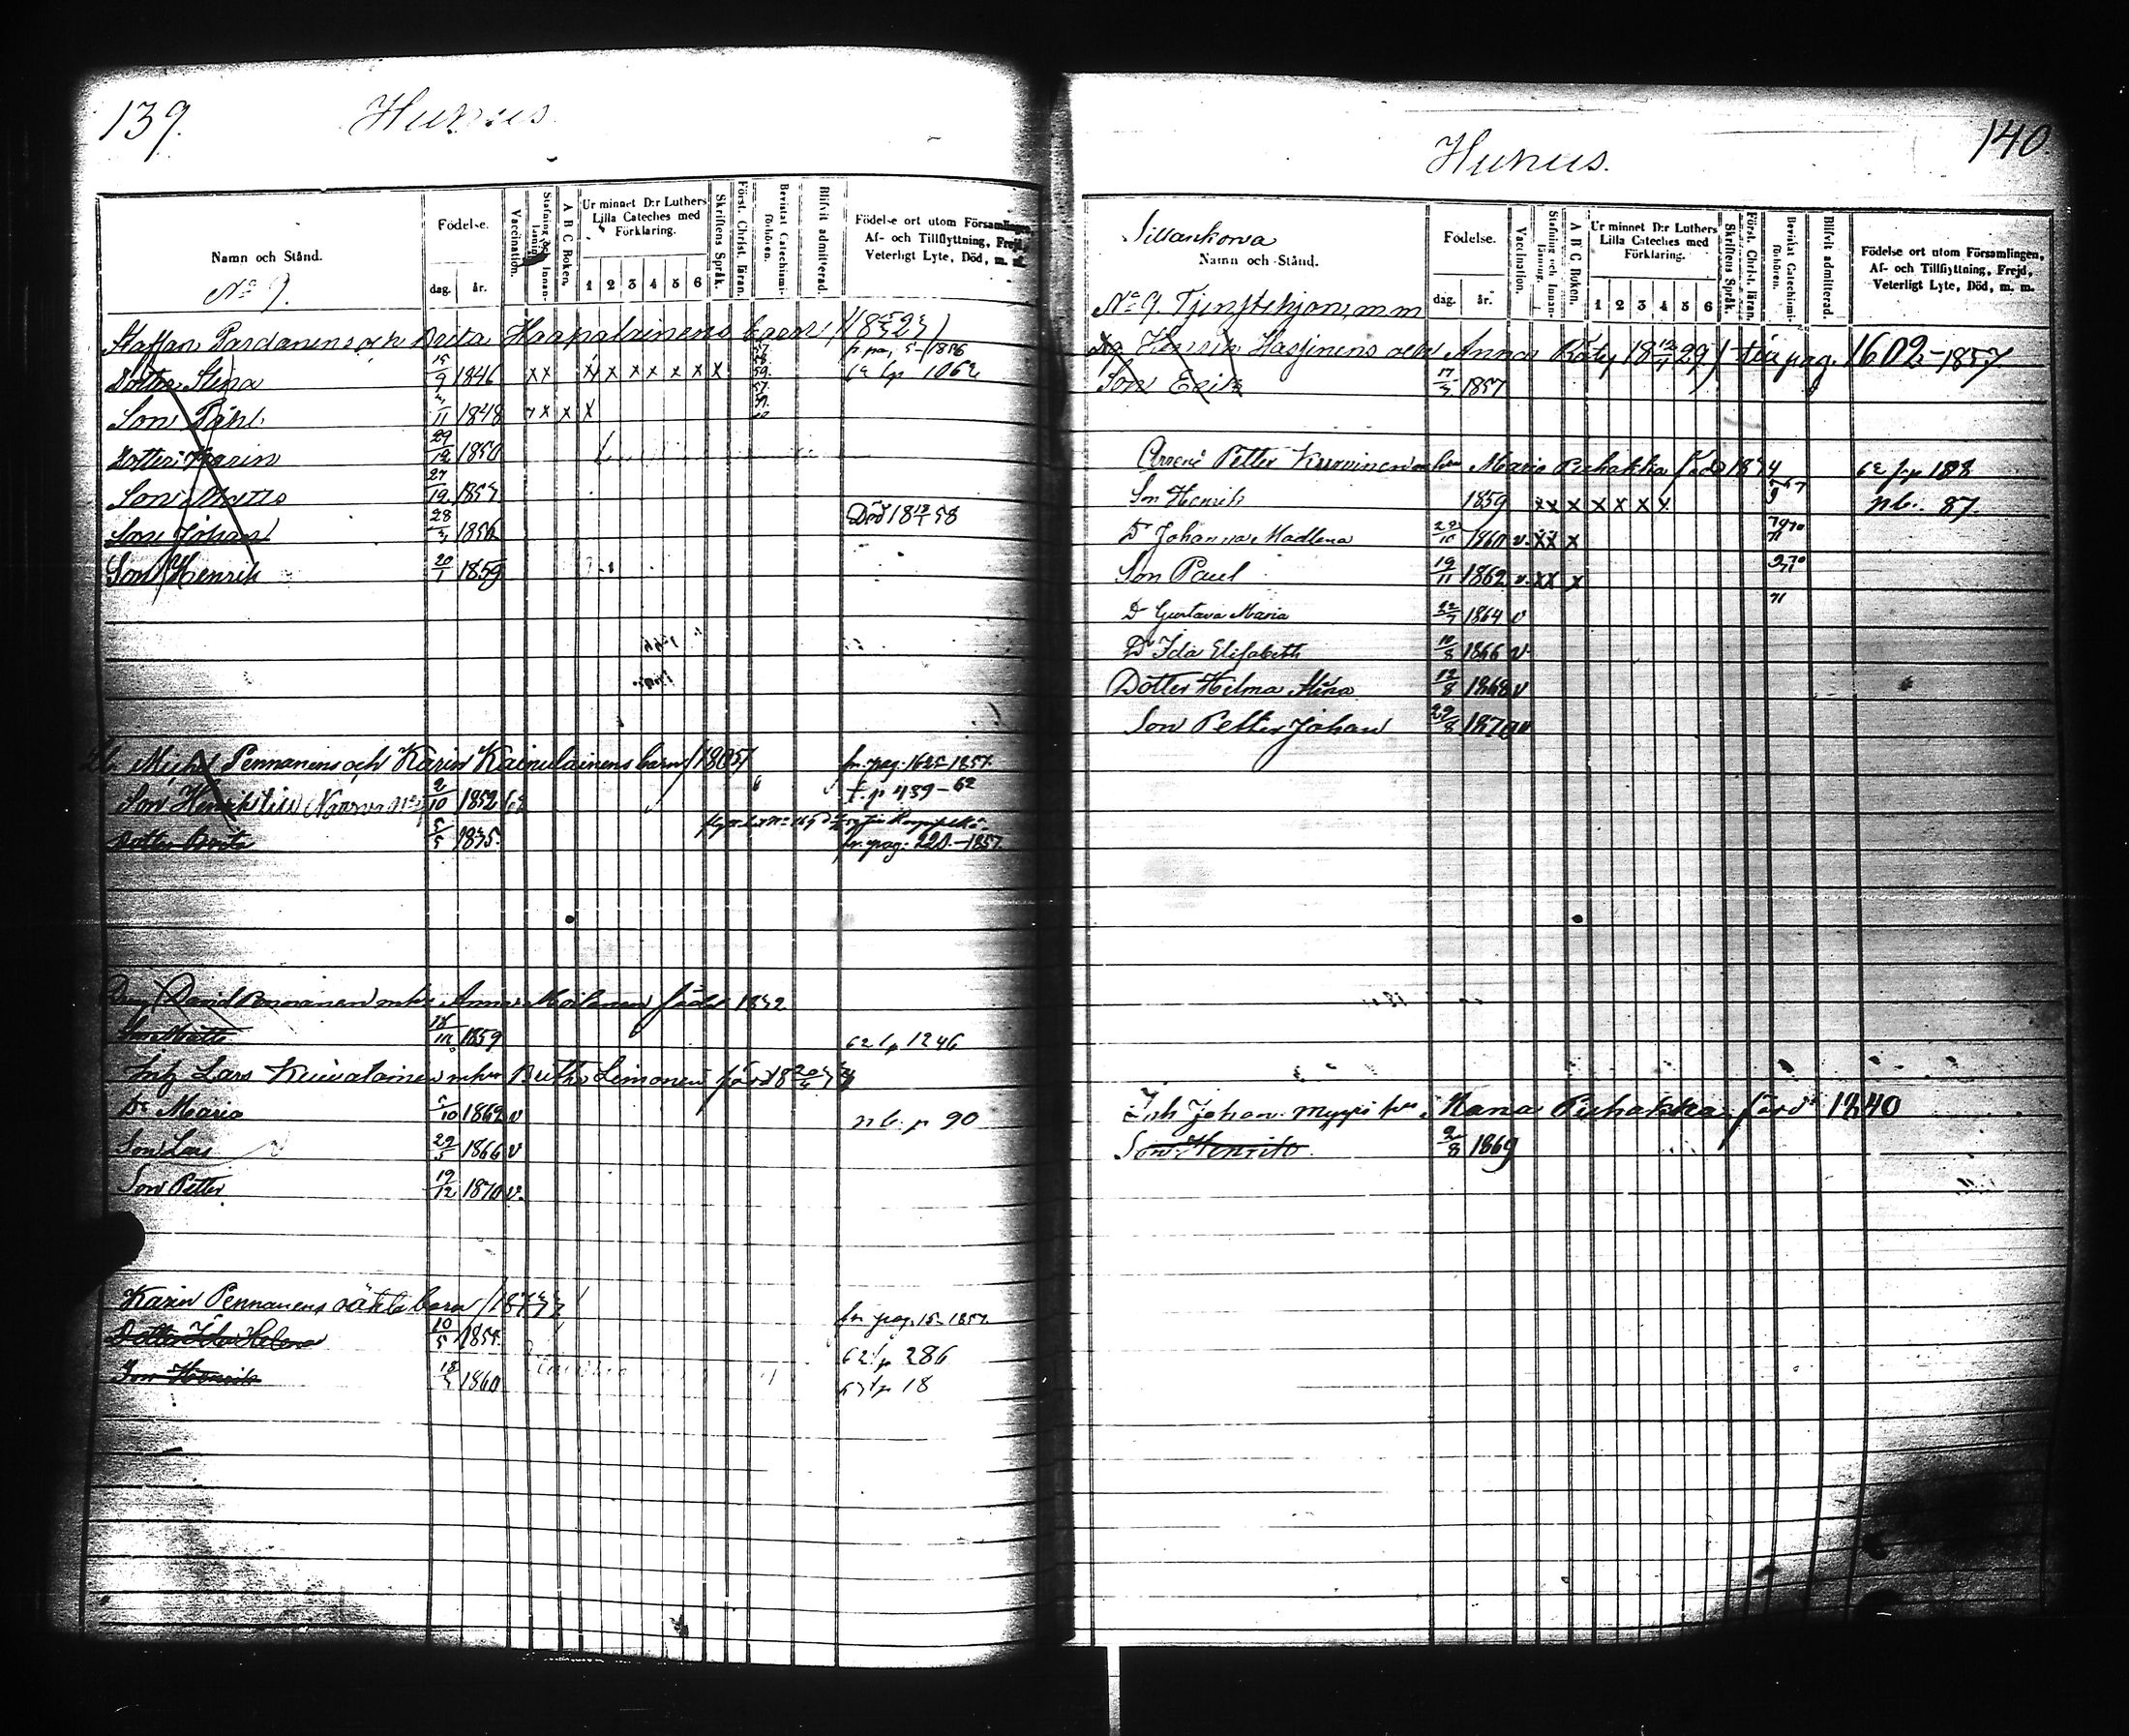 139.
Hunus
Namn och Stånd.
Nº 9.
Födelse.
dag. år.
Vaccination.
Stafning och Innanläsning.
A B C Boken.
Ur minnet D:r Luthers Lilla Cateches med Förklaring.
1 2 3 4 5 6
Skriftens Språk.
Först. Christ. läran.
Bevistat Catechismi-förhören.
Blifvit admitterad.
Födelse ort utom Församlingen, Af- och Tillflyttning, Frejd, Veterligt Lyte, Död, m. m.
Staffan Pardanens och Brita Haapalainens barn
Dotter Stina 15/9 1846 x x x x x x x x x 62 tp 1062
Son Påhl 11 1848 x x x
Dotter Karin 29/12 1850
Son Matts 27/12 1853
Son Johan 28 1856 Död 18 58
Son Henrik 20/1 1859
Michel Pennanens och Karin Kainulainens barn
fr. pag. 1857.
Son Henrik 2/10 1852 t. p 439-62
Dotter Brita 5/5 1835. fr. pag. 220.-1857.
David Pennanen Anna Moilanen född 1832
Son Matts 18 1859 62 tp 1246
Lars Kuivalainen Simonen
Dr Maria 10 1862 v n b. p 90
Son Lars 29/5 1866 v
Son Petter 19/12 1870 v.
Karin Pennanens oäkta barn
fr pag. 15 1857.
Dotter Ida Helena 10/5 1855. 62 tp 286
Son Henrik 18 1860 tp 18
140.
Hunus.
Sillankorva
Namn och Stånd.
Nº 9. Tjenstehjon, m m
Födelse.
dag. år.
Vaccination.
Stafning och Innanläsning.
A B C Boken.
Ur minnet D:r Luthers Lilla Cateches med Förklaring.
1 2 3 4 5 6
Skriftens Språk.
Först. Christ. läran.
Bevistat Catechismi-förhören.
Blifvit admitterad.
Födelse ort utom Församlingen, Af- och Tillflyttning, Frejd, Veterligt Lyte, Död, m. m.
Henrik Hassinens och Anna Räty 18 29) till pag. 1602-1857.
Son Erik 17 1857
Petter Kurvinen Maria Puhakka född 62 tp 188
Son Henrik 1859 x x x x x x x n b. 87.
Dr Johanna Madlena 22/10 1860 v. x x x
Son Paul 19/11 1862 v. x x x
Dr Gustava Maria 22 1864 v
Dr Ida Elisabeth 10/8 1866 v.
Dotter Helma Stina 12/8 1868 v
Son Petter Johan 29/8 1870 v
Inh Johan Myyri Puhakka 1840
Son Henrik 2/8 1869